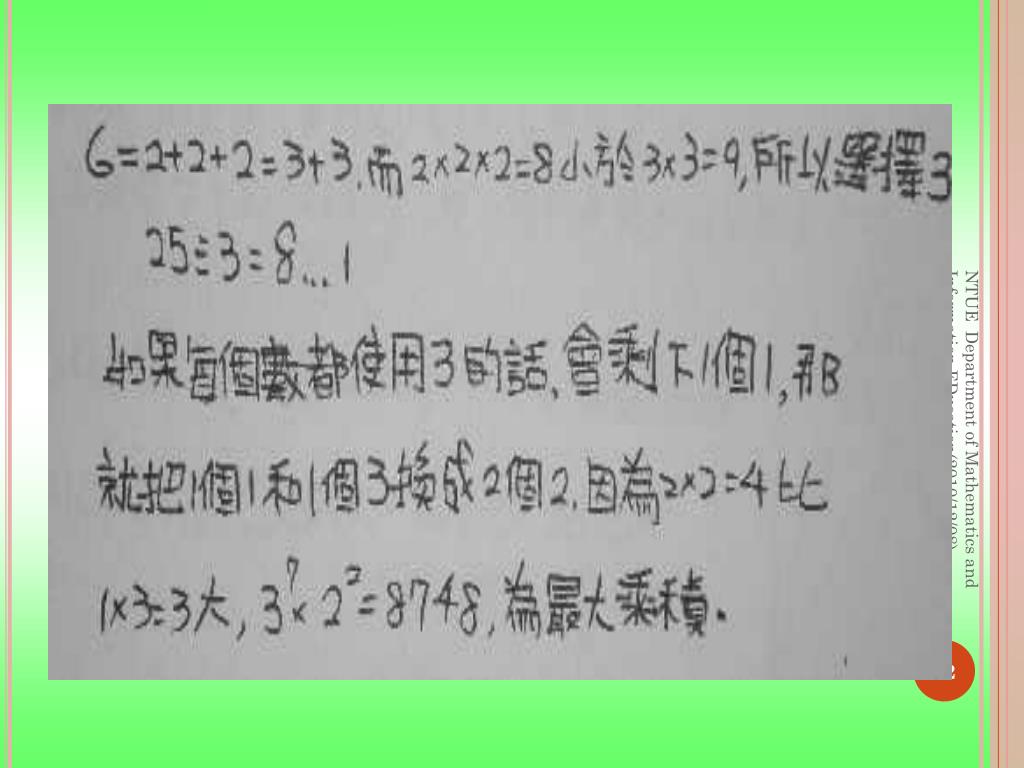 6=2+2+2=3+3,而2×2×2=8小於3×3=9,所以選擇3
25÷3=8...1
如果每個數都使用3的話,會剩下1個1,那
就把1個1和1個3換成2個2,因為2×2=4比
1×3=3大,3⁷×2²=8748,為最大乘積.
NTUE Department of Mathematics and